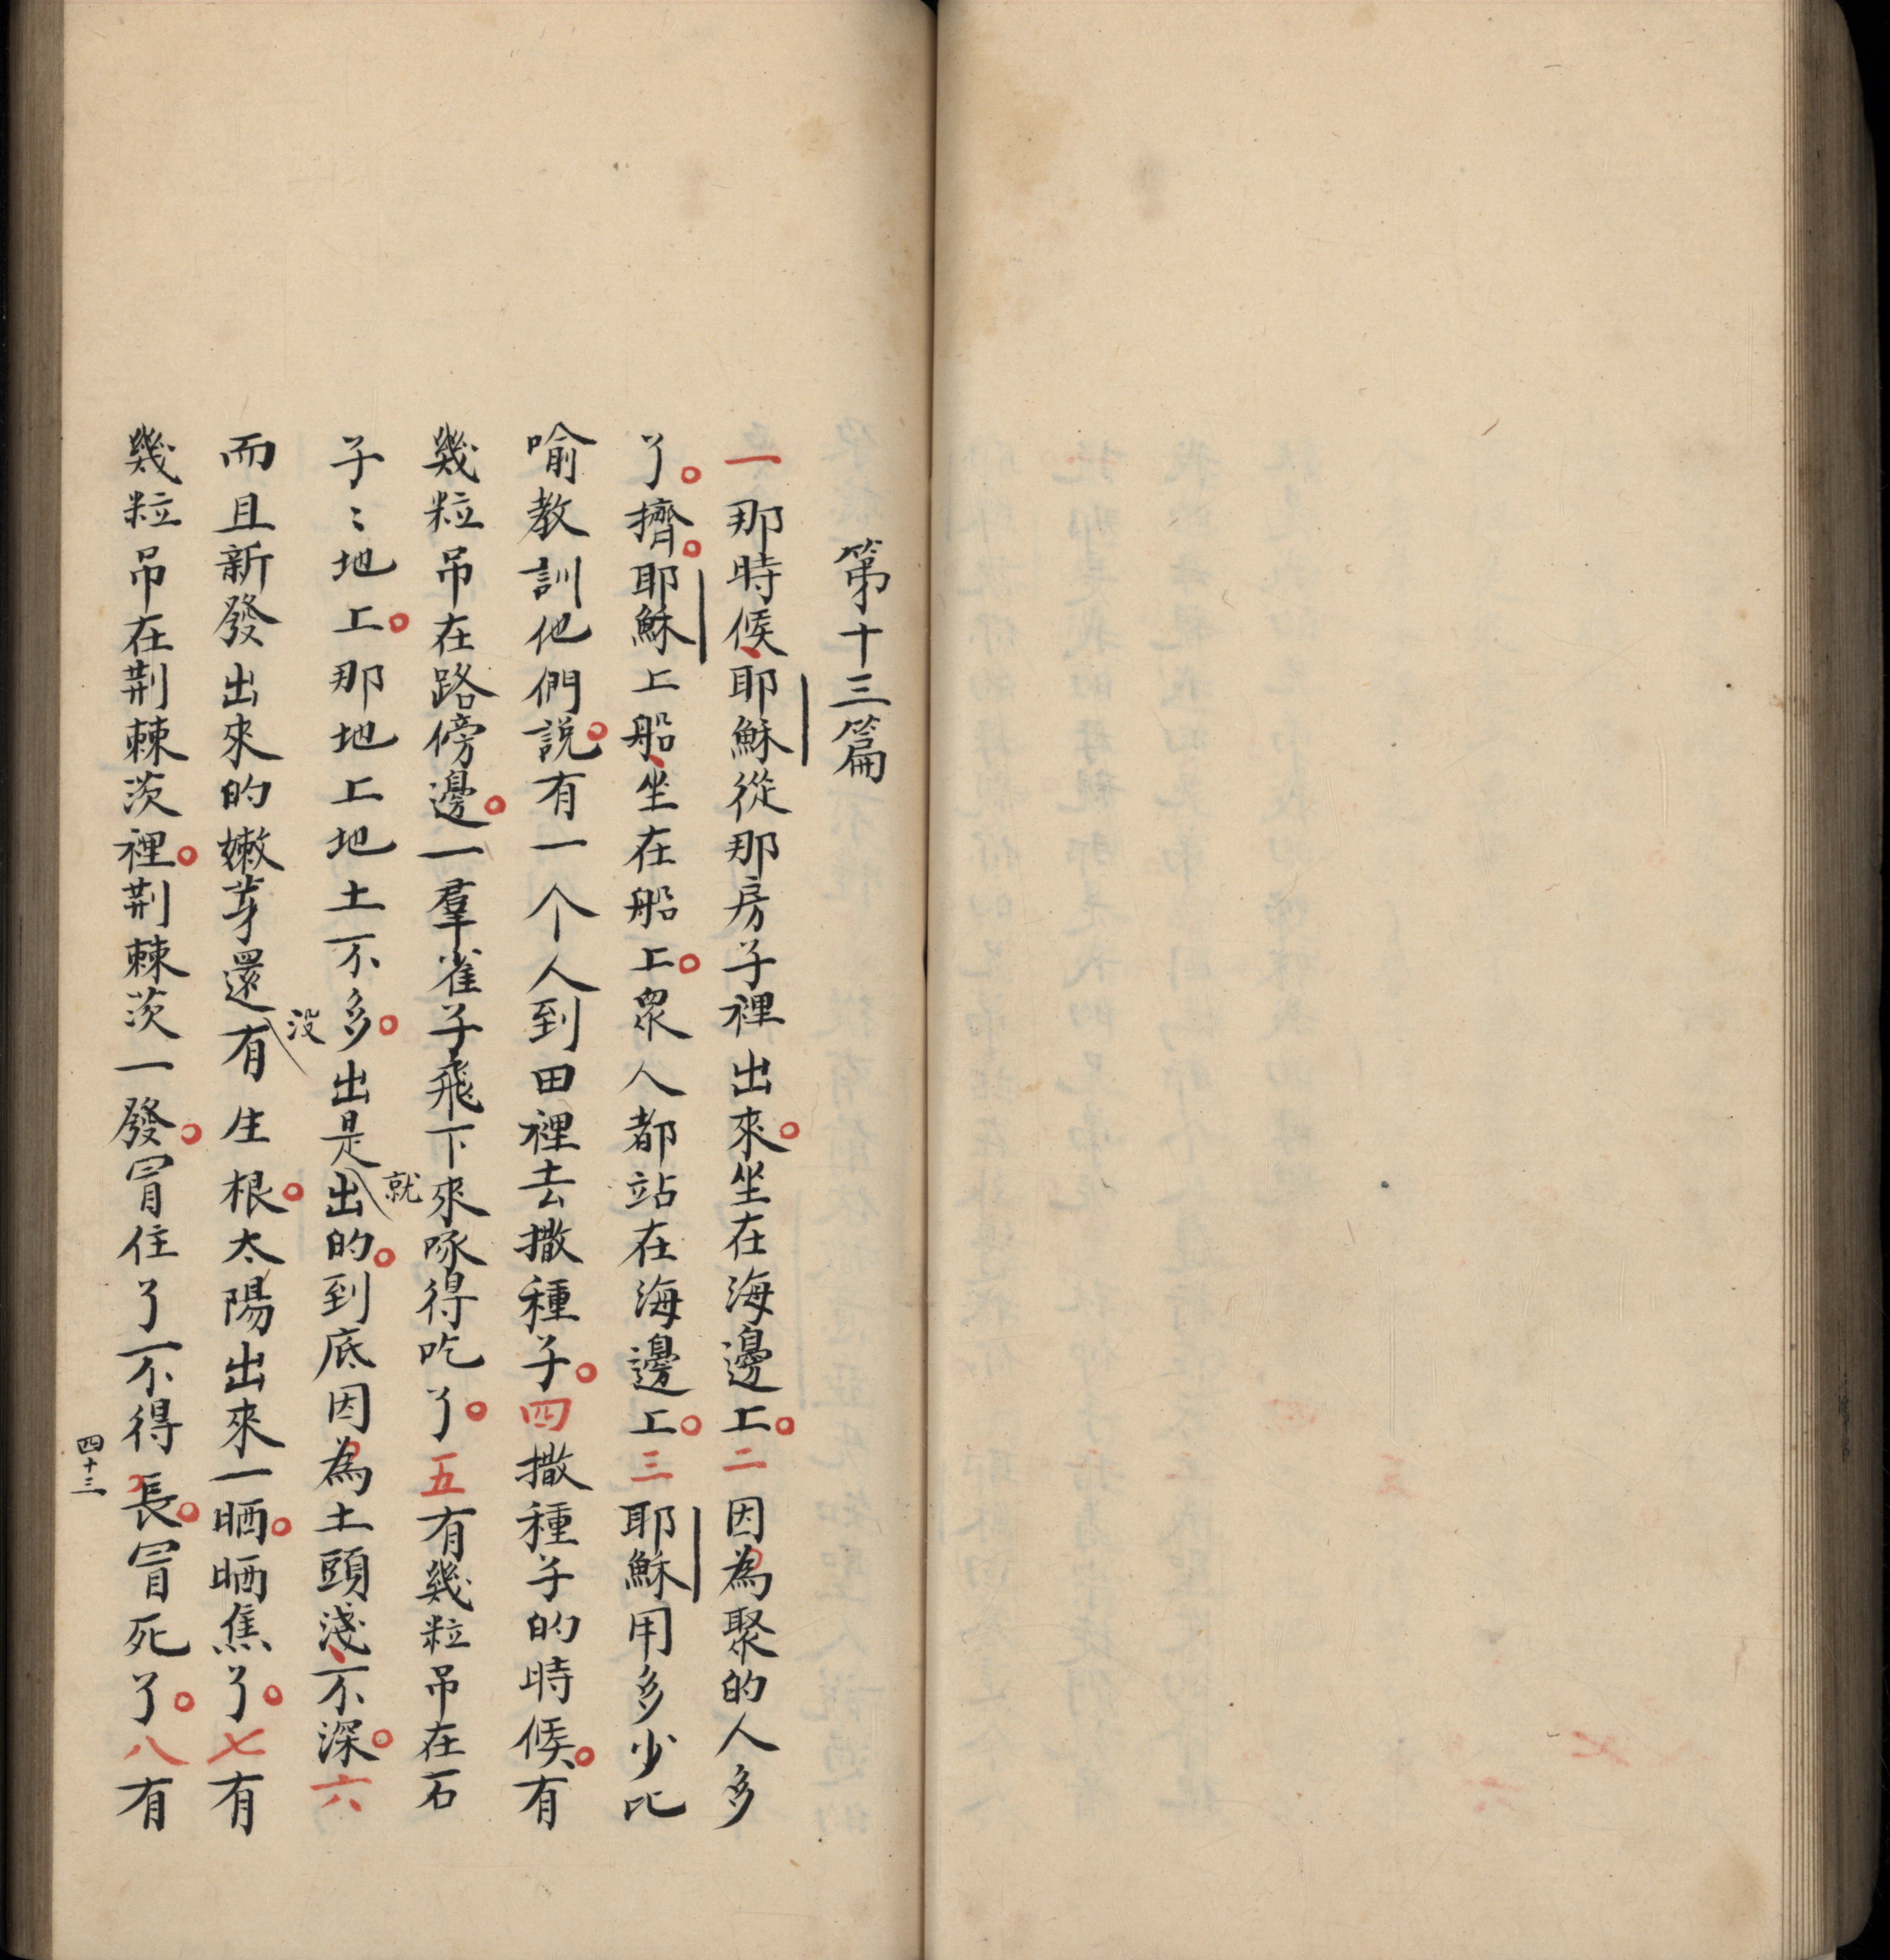 第十三篇
一那時候、耶穌從那房子裡出來。坐在海邊上。二因為聚的人多
了。擠。耶穌上船、坐在船上。眾人都站在海邊上。三耶穌用多少比
喻教訓他們說。有一个人到田裡去撒種子。四撒種子的時候。有
幾粒吊在路傍邊。一羣雀子飛下來啄得吃了。五有幾粒吊在石
子〻地上。那地上地土不多。出是就出的。到底因為土頭淺、不深。六
而且新發出來的嫩芽還沒有生根。太陽出來一晒。晒焦了。七有
幾粒吊在荆棘茨裡。荆棘茨一發。冒住了不得長。冒死了。八有
四十三